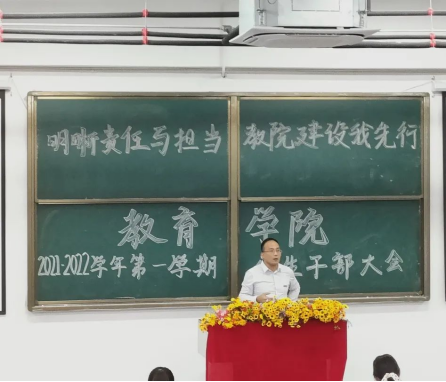 明晰责任与担当 教院建设我先行
教育学院
2021-2022学年第一学期 生干部大会